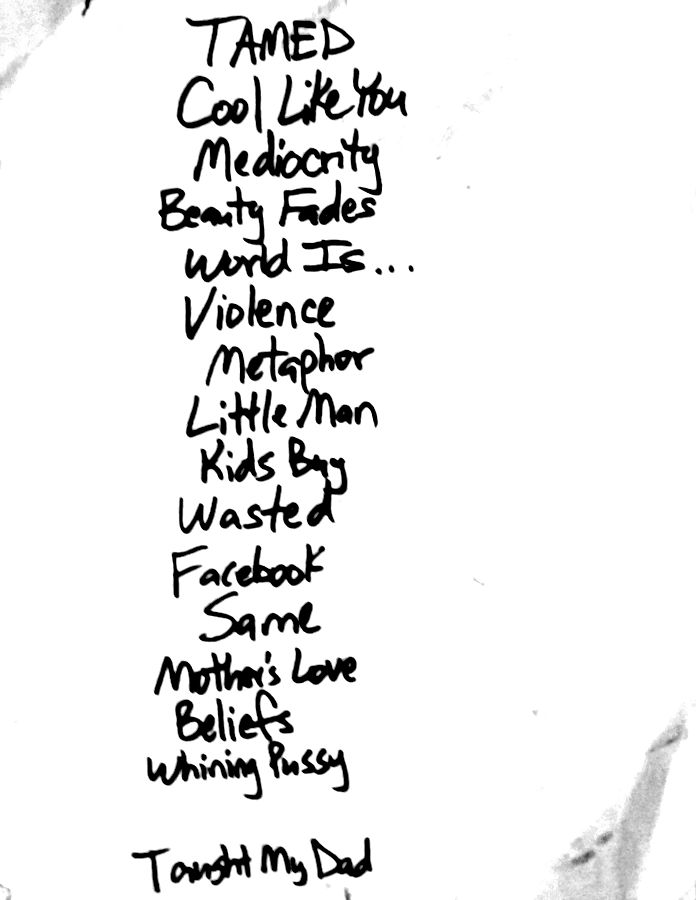 TAMED
Cool Like You
Mediocrity
Beauty Fades
World Is...
Violence
Metaphor
Little Man
Kids Buy
Wasted
Facebook
Same
Mother's Love
Beliefs
Whining Pussy
Taught My Dad